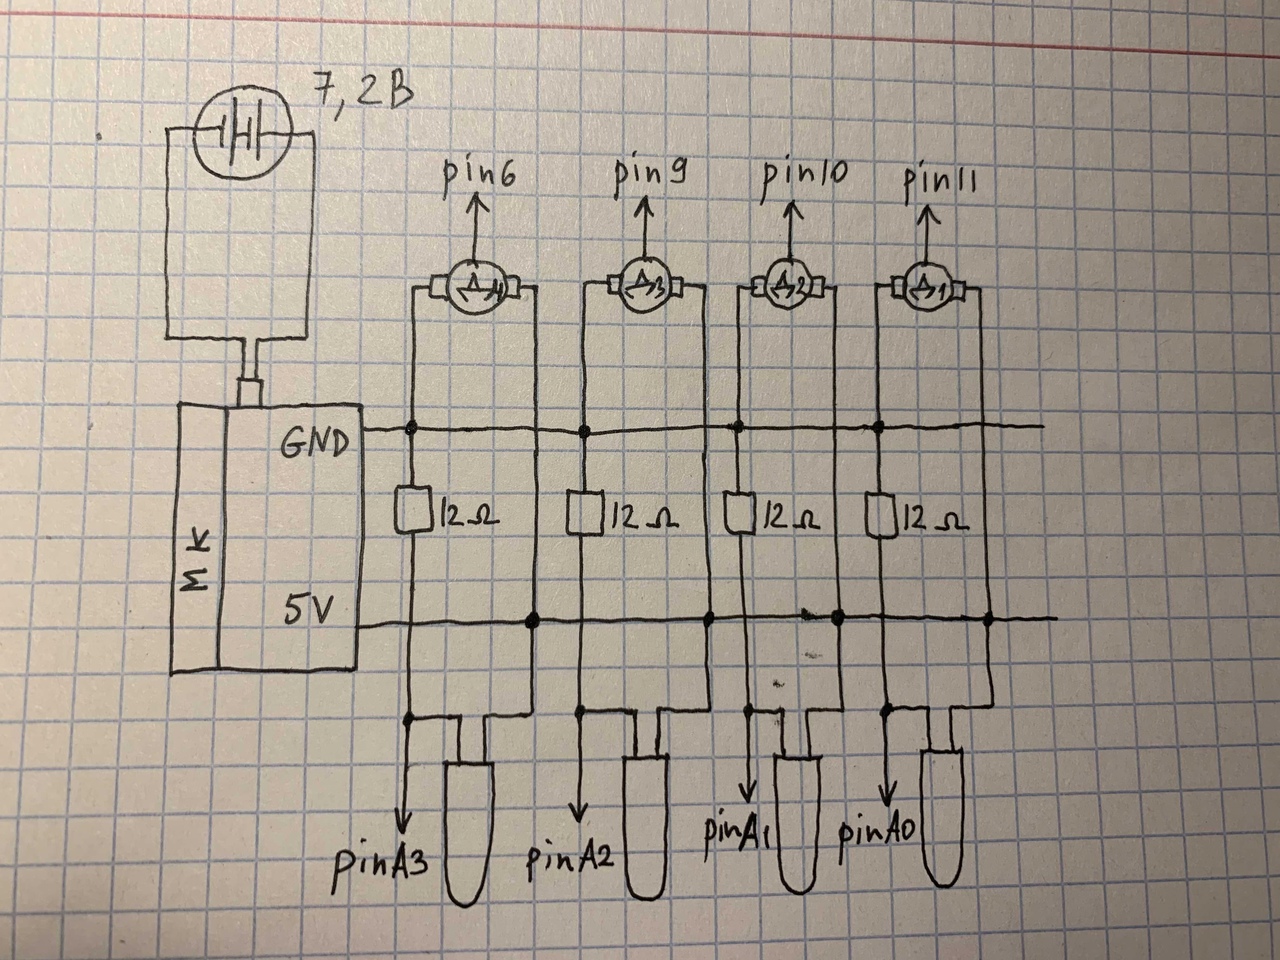 7,2В
pin6 pin9 pin10 pin11
Д4 Д3 Д2 Д1
GND
12Ω 12Ω 12Ω 12Ω
МК
5V
pinA3 pinA2 pinA1 pinA0